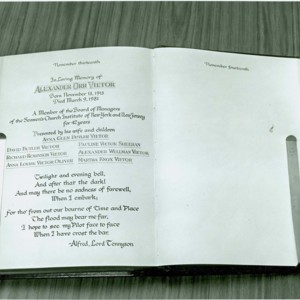 November thirteenth
In Loving Memory of
ALEXANDER ORR VIETOR
Born November 13, 1913
Died March 3, 1981
A Member of the Board of Managers
of the Seamen's Church Institute of New York and New Jersey
for 42 years
Presented by his wife and children
ANNA GLEN VIETOR
DAVID VIETOR PAULINE VIETOR
VIETOR ALEXANDER VIETOR
ANNA LOUISE VIETOR OLIVER MARTHA VIETOR
Twilight and evening bell,
And after that the dark!
And may there be no sadness of farewell,
When I embark;
For tho' from out our bourne of Time and Place
The flood may bear me far,
I hope to see my Pilot face to face
When I have crost the bar.
-Alfred, Lord Tennyson
November fourteenth